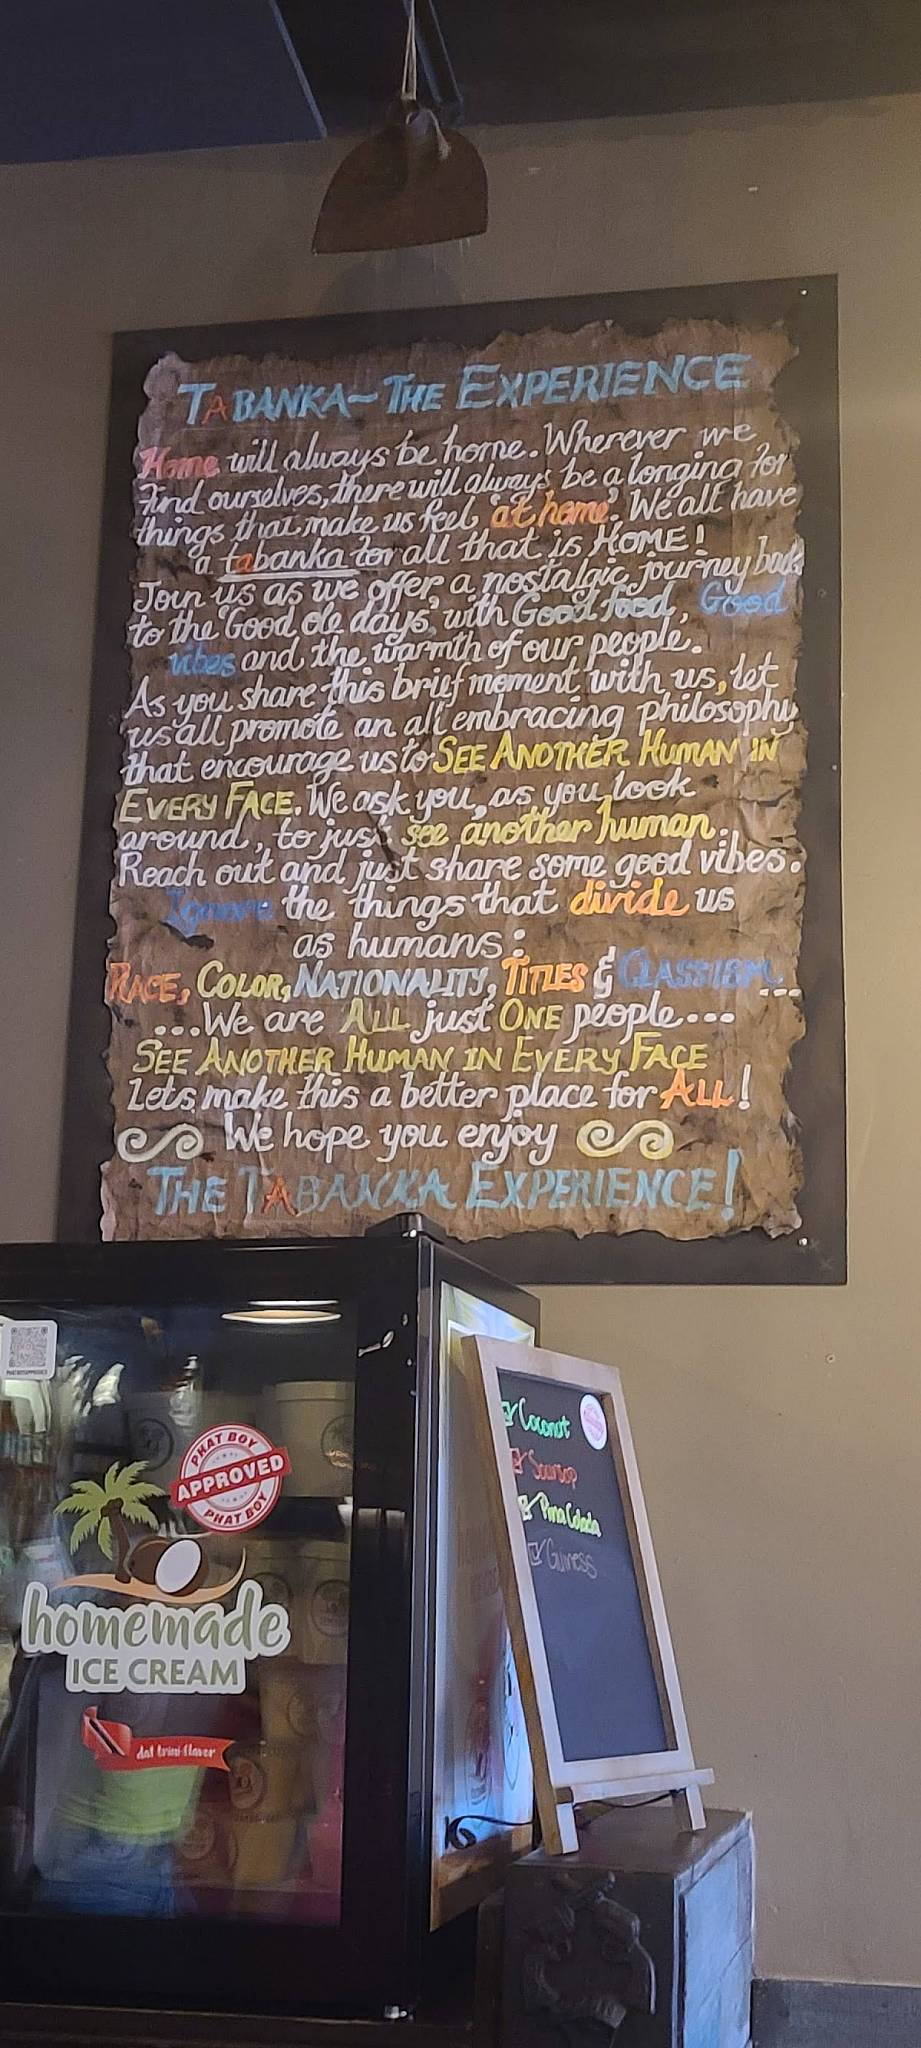 TABANKA~THE EXPERIENCE
Home will always be home. Wherever we
find ourselves, there will always be a longing for
things that make us feel 'at home'. We all have
a tabanka for all that is HOME!
Join us as we offer, a nostalgic journey back
to the 'Good ole days', with Good food, Good
vibes and the warmth of our people.
As you share this brief moment with us, let
us all promote an all embracing philosophy
that encourage us to SEE ANOTHER HUMAN IN
EVERY FACE. We ask you, as you look
around, to just see another human.
Reach out and just share some good vibes.
Ignore the things that divide us
as humans:
RACE, COLOR, NATIONALITY, TITLES & CLASSISM...
...We are ALL just ONE people...
SEE ANOTHER HUMAN IN EVERY FACE
Lets make this a better place for ALL!
We hope you enjoy
THE TABANKA EXPERIENCE!
Coconut
Soursop
Pina Colada
Guiness
PHAT BOY
APPROVED
PHAT BOY
homemade
ICE CREAM
dat trini flavor